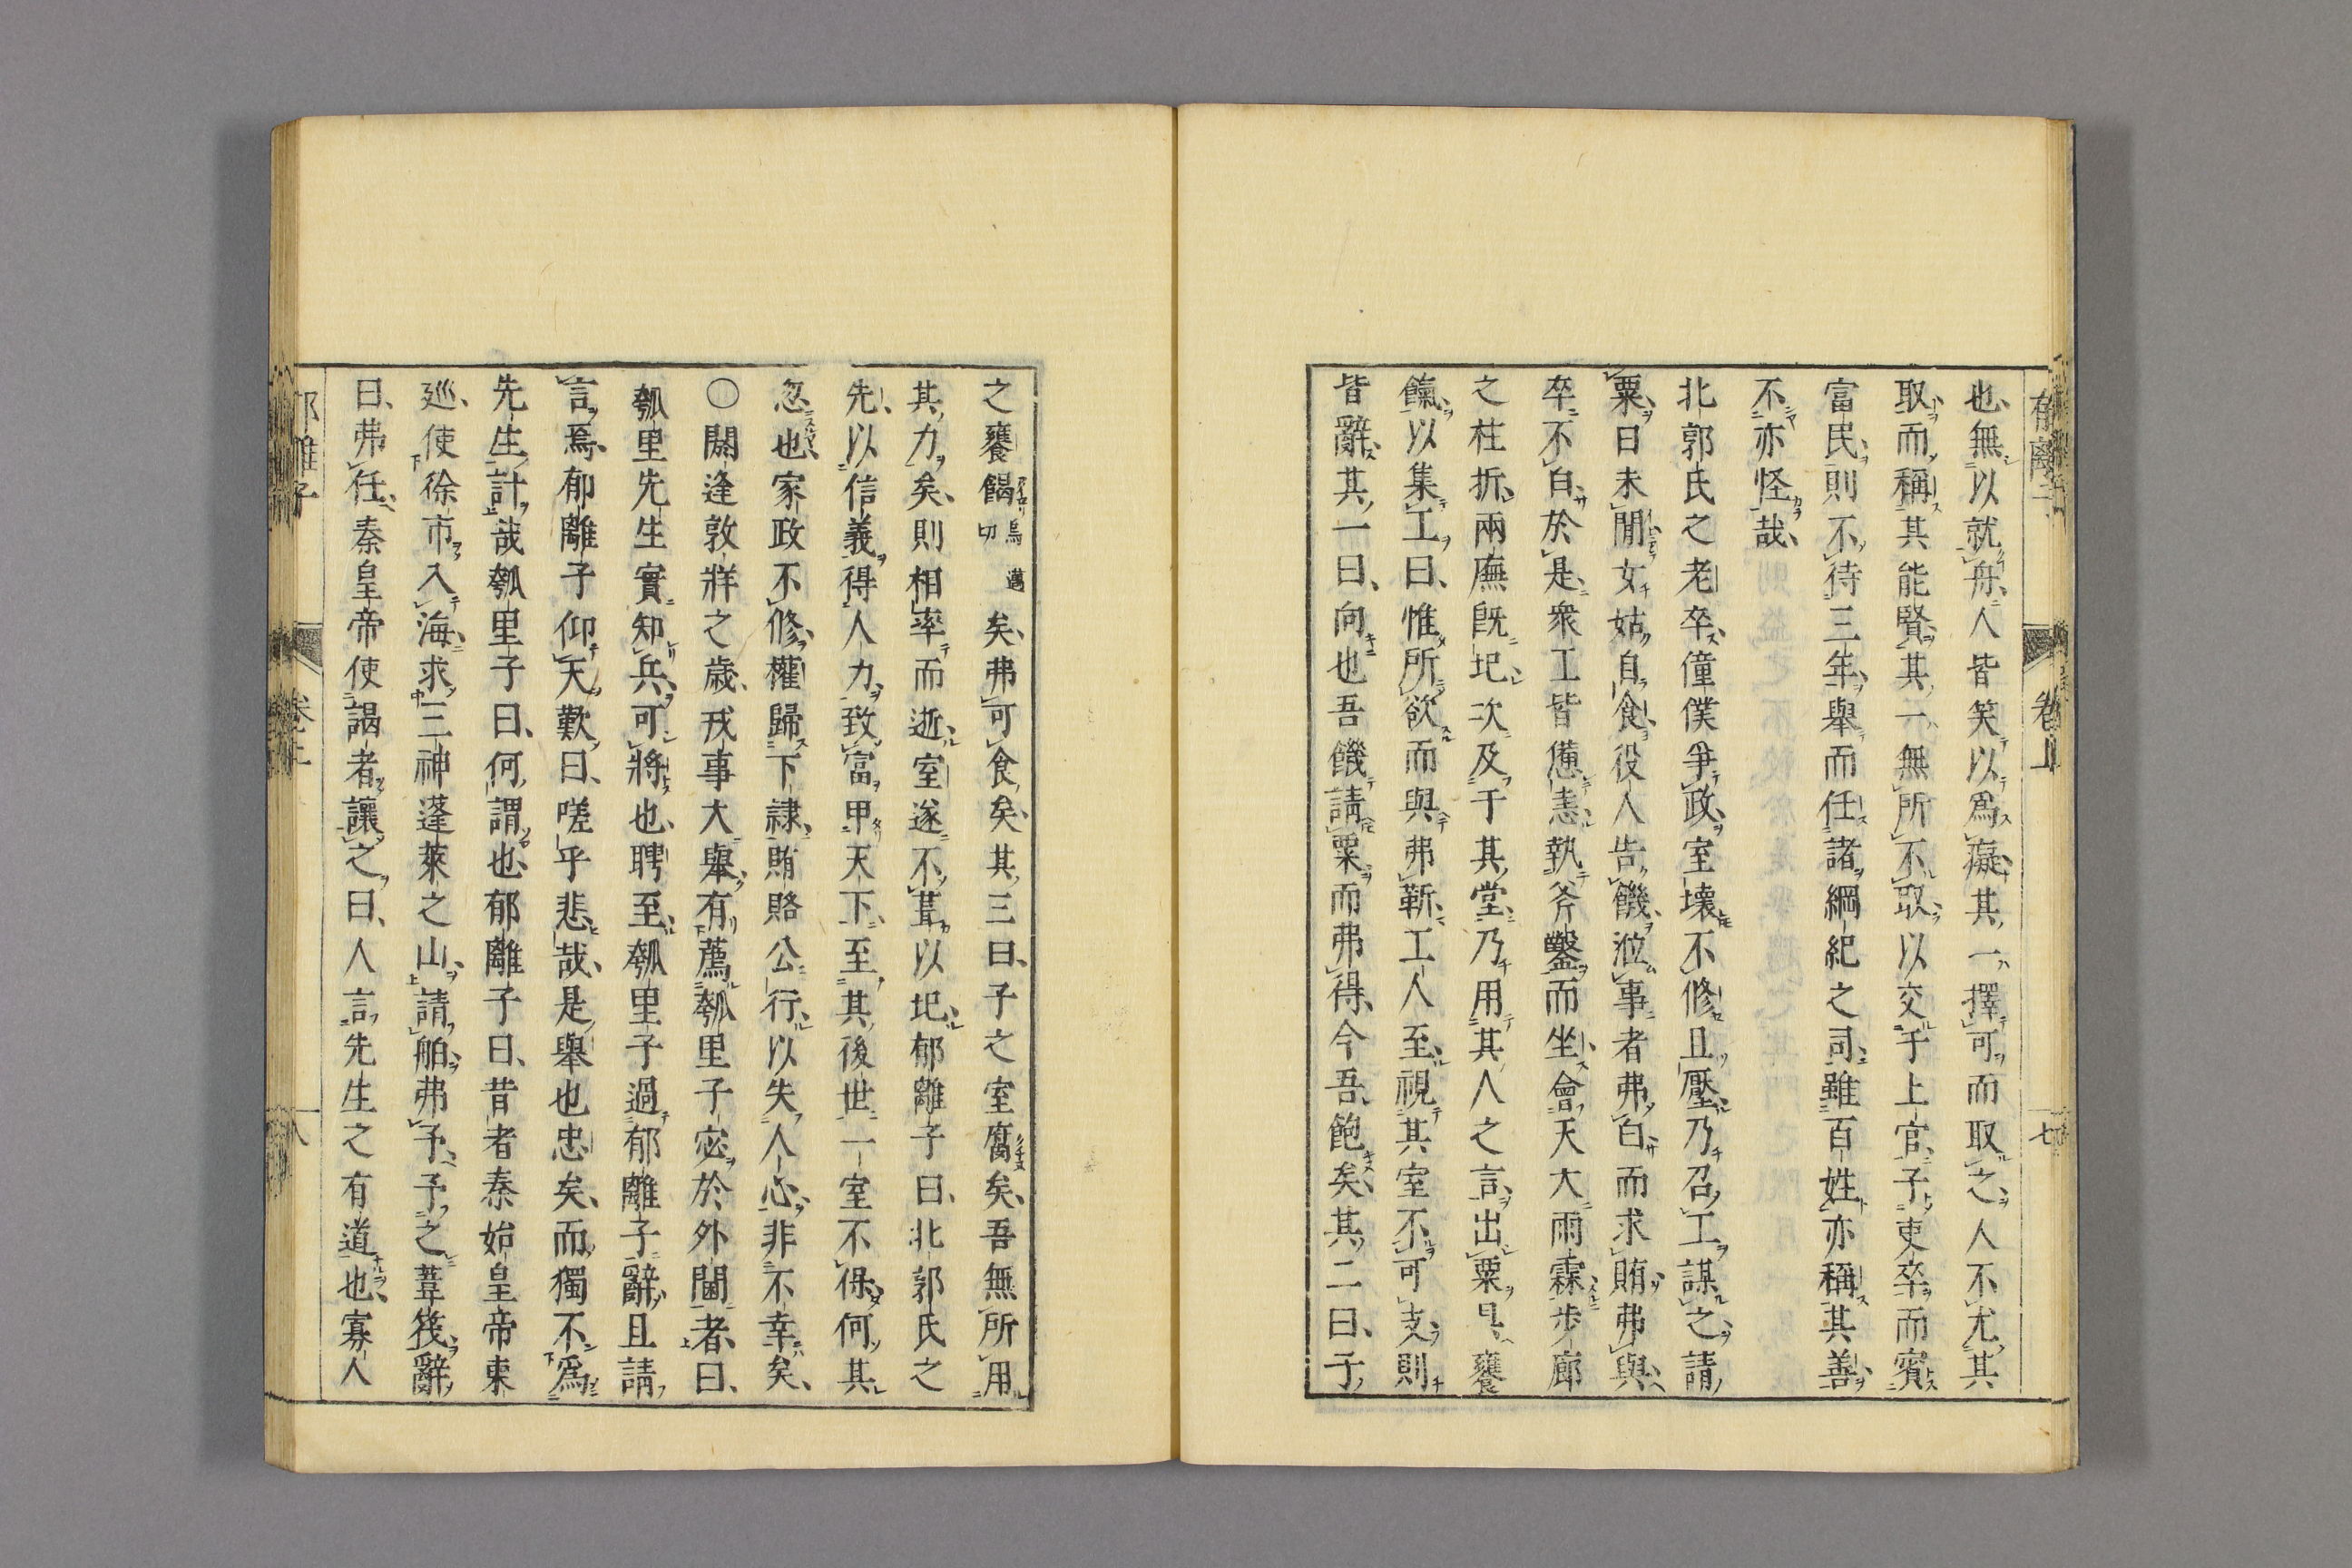 郁離子 卷上 七
也無以就舟人皆笑以爲癡其一擇可而取之人不尤其
取而稱其能賢其一無所不取以交于上官子吏卒而賓
富民則不待三年舉而任諸綱紀之司雖百姓亦稱其善
不亦怪哉
北郭氏之老卒僮僕爭政室壞不修且壓乃召工謀之請
粟曰未閒女姑自食役人告饑涖事者弗白而求賄弗與
卒不白於是衆工皆憊恚執斧鑿而坐會天大雨霖步廊
之柱折兩廡旣圮次及于其堂乃用其人之言出粟具饔
餼以集工曰惟所欲而與弗靳工人至視其室不可支則
皆辭其一曰向也吾饑請粟而弗得今吾飽矣其二曰子
之饔餲烏邁切矣弗可食矣其三曰子之室腐矣吾無所用
其力矣則相率而逝室遂不葺以圮郁離子曰北郭氏之
先以信義得人力致富甲天下至其後世一室不保何其
忽也家政不修權歸下隷賄賂公行以失人心非不幸矣
○閼逢敦牂之歳戎事大舉有薦瓠里子宓於外閫者曰
瓠里先生實知兵可將也聘至瓠里子過郁離子辭且請
言焉郁離子仰天歎曰嗟乎悲哉是舉也忠矣而獨不爲
先生計哉瓠里子曰何謂也郁離子曰昔者秦始皇帝東
巡使徐市入海求三神蓬萊之山請舶弗予予之葦筏辭
曰弗任秦皇帝使謁者讓之曰人言先生之有道也寡人
郁離子 卷上 八